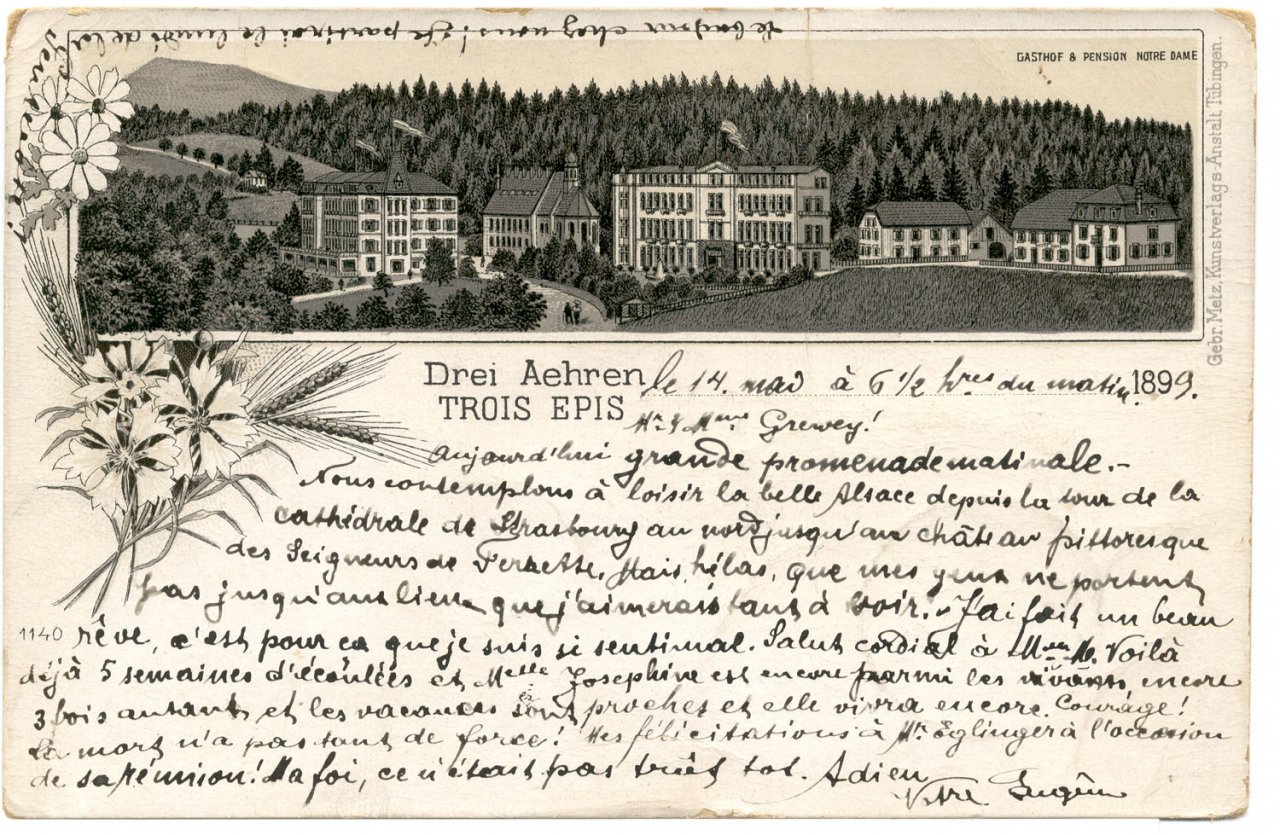 le bonjour chez vous! Je partirai le lundi de la
GASTHOF & PENSION NOTRE DAME
Gebr. Metz, Kunstverlags-Anstalt, Tübingen.
Drei Aehren
TROIS EPIS
le 14. mai à 6 1/2 hres du matin 1899.
Mr & Mme Grewey!
Aujourd'hui grande promenade matinale.-
Nous contemplons à loisir la belle Alsace depuis la tour de la
cathédrale de Strasbourg au nord jusqu'au château pittoresque
des Seigneurs de Ferrette. Mais, hélas, que mes yeux ne portent
pas jusqu'aux lieux que j'aimerais tant à voir. J'ai fait un beau
1140
rêve, c'est pour ça que je suis si sentimal. Salut cordial à Voilà
déjà 5 semaines d'écoulées et Melle Josephine est encore parmi les vivants, encore
3 fois autant et les vacances sont proches et elle vivra encore. Courage!
La mort n'a pas tant de force! Mes félicitations à Mr. Eglinger à l'occasion
de sa réunion! Ma foi, ce n'était pas trop tot. Adieu
Votre Eugène